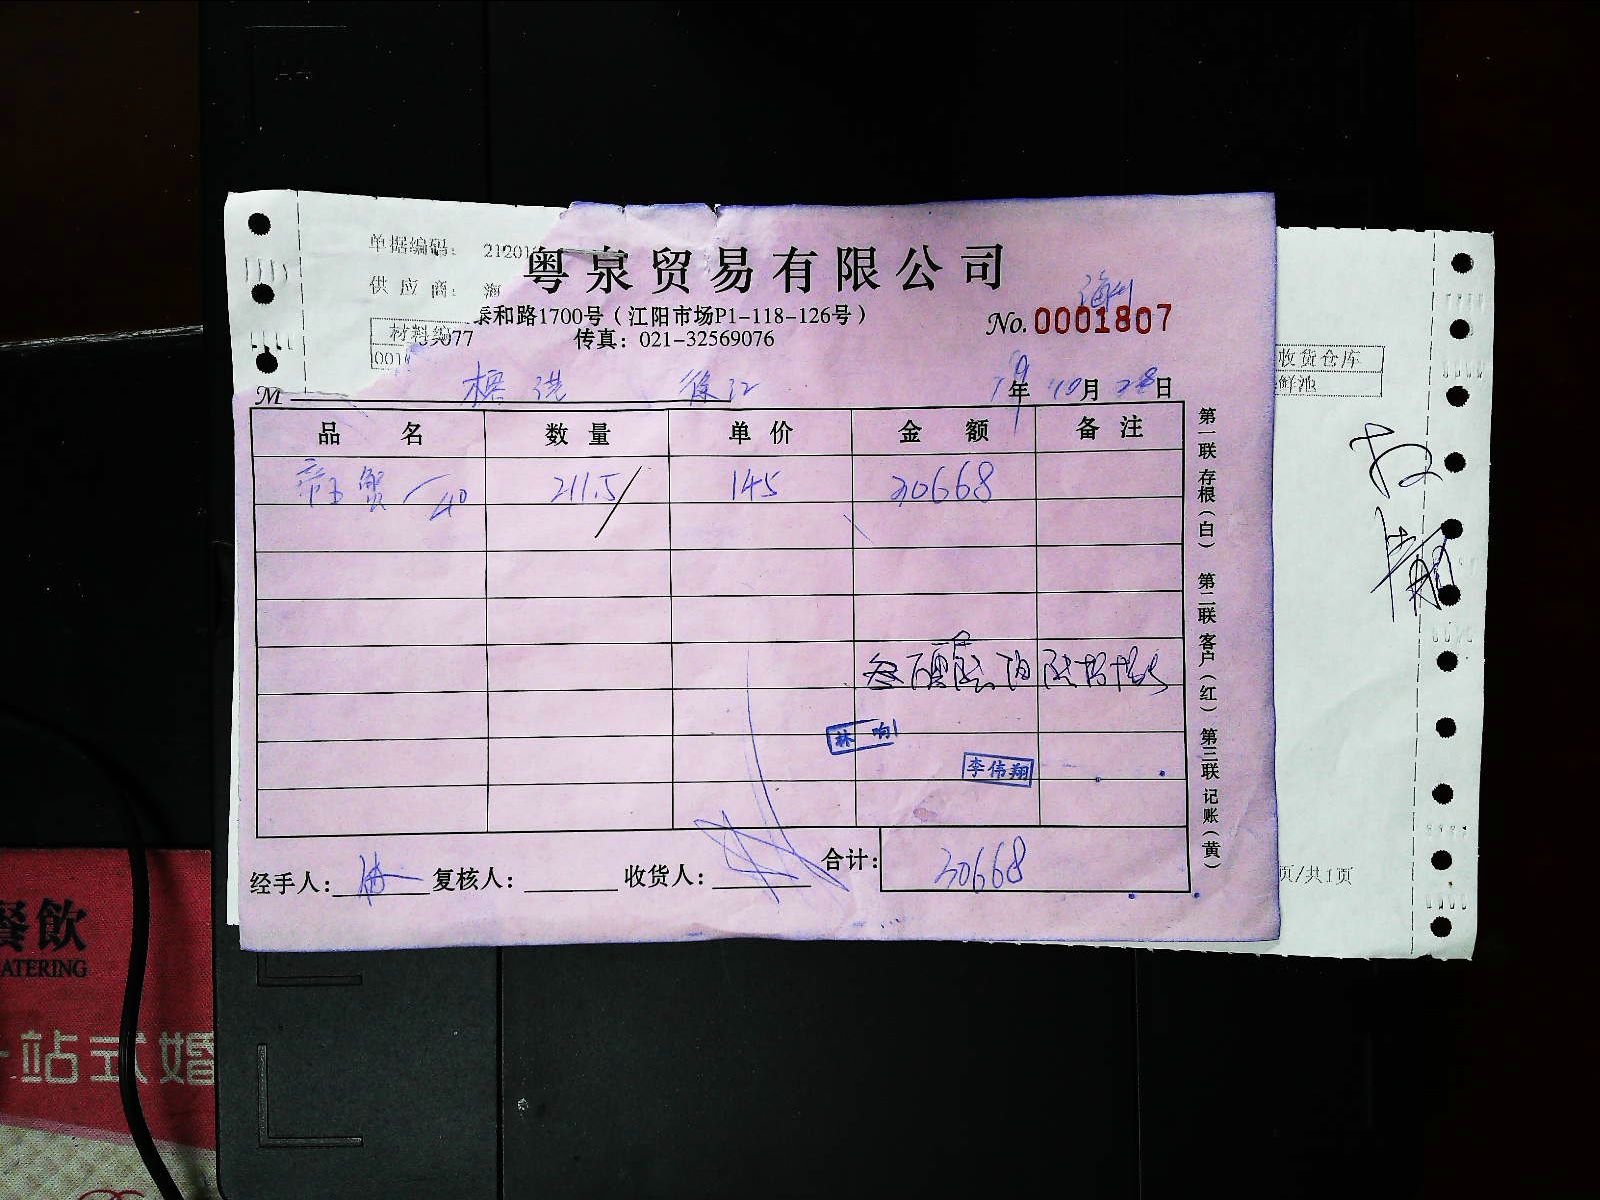 单据编码: 21201
粤泉贸易有限公司
供应商: 海
泰和路1700号（江阳市场P1-118-126号）
No. 0001807
材料编
077
传真: 021-32569076
收货仓库
001
鲜池
M
徐江
19年10月28日
品名 数量 单价 金额 备注
帝王蟹 40 211.5 145 30668
林响
李伟翔
经手人: 复核人: 收货人: 合计: 30668
第一联 存根（白） 第二联 客户（红） 第三联 记账（黄）
页/共1页
餐飲
ATERING
站式婚